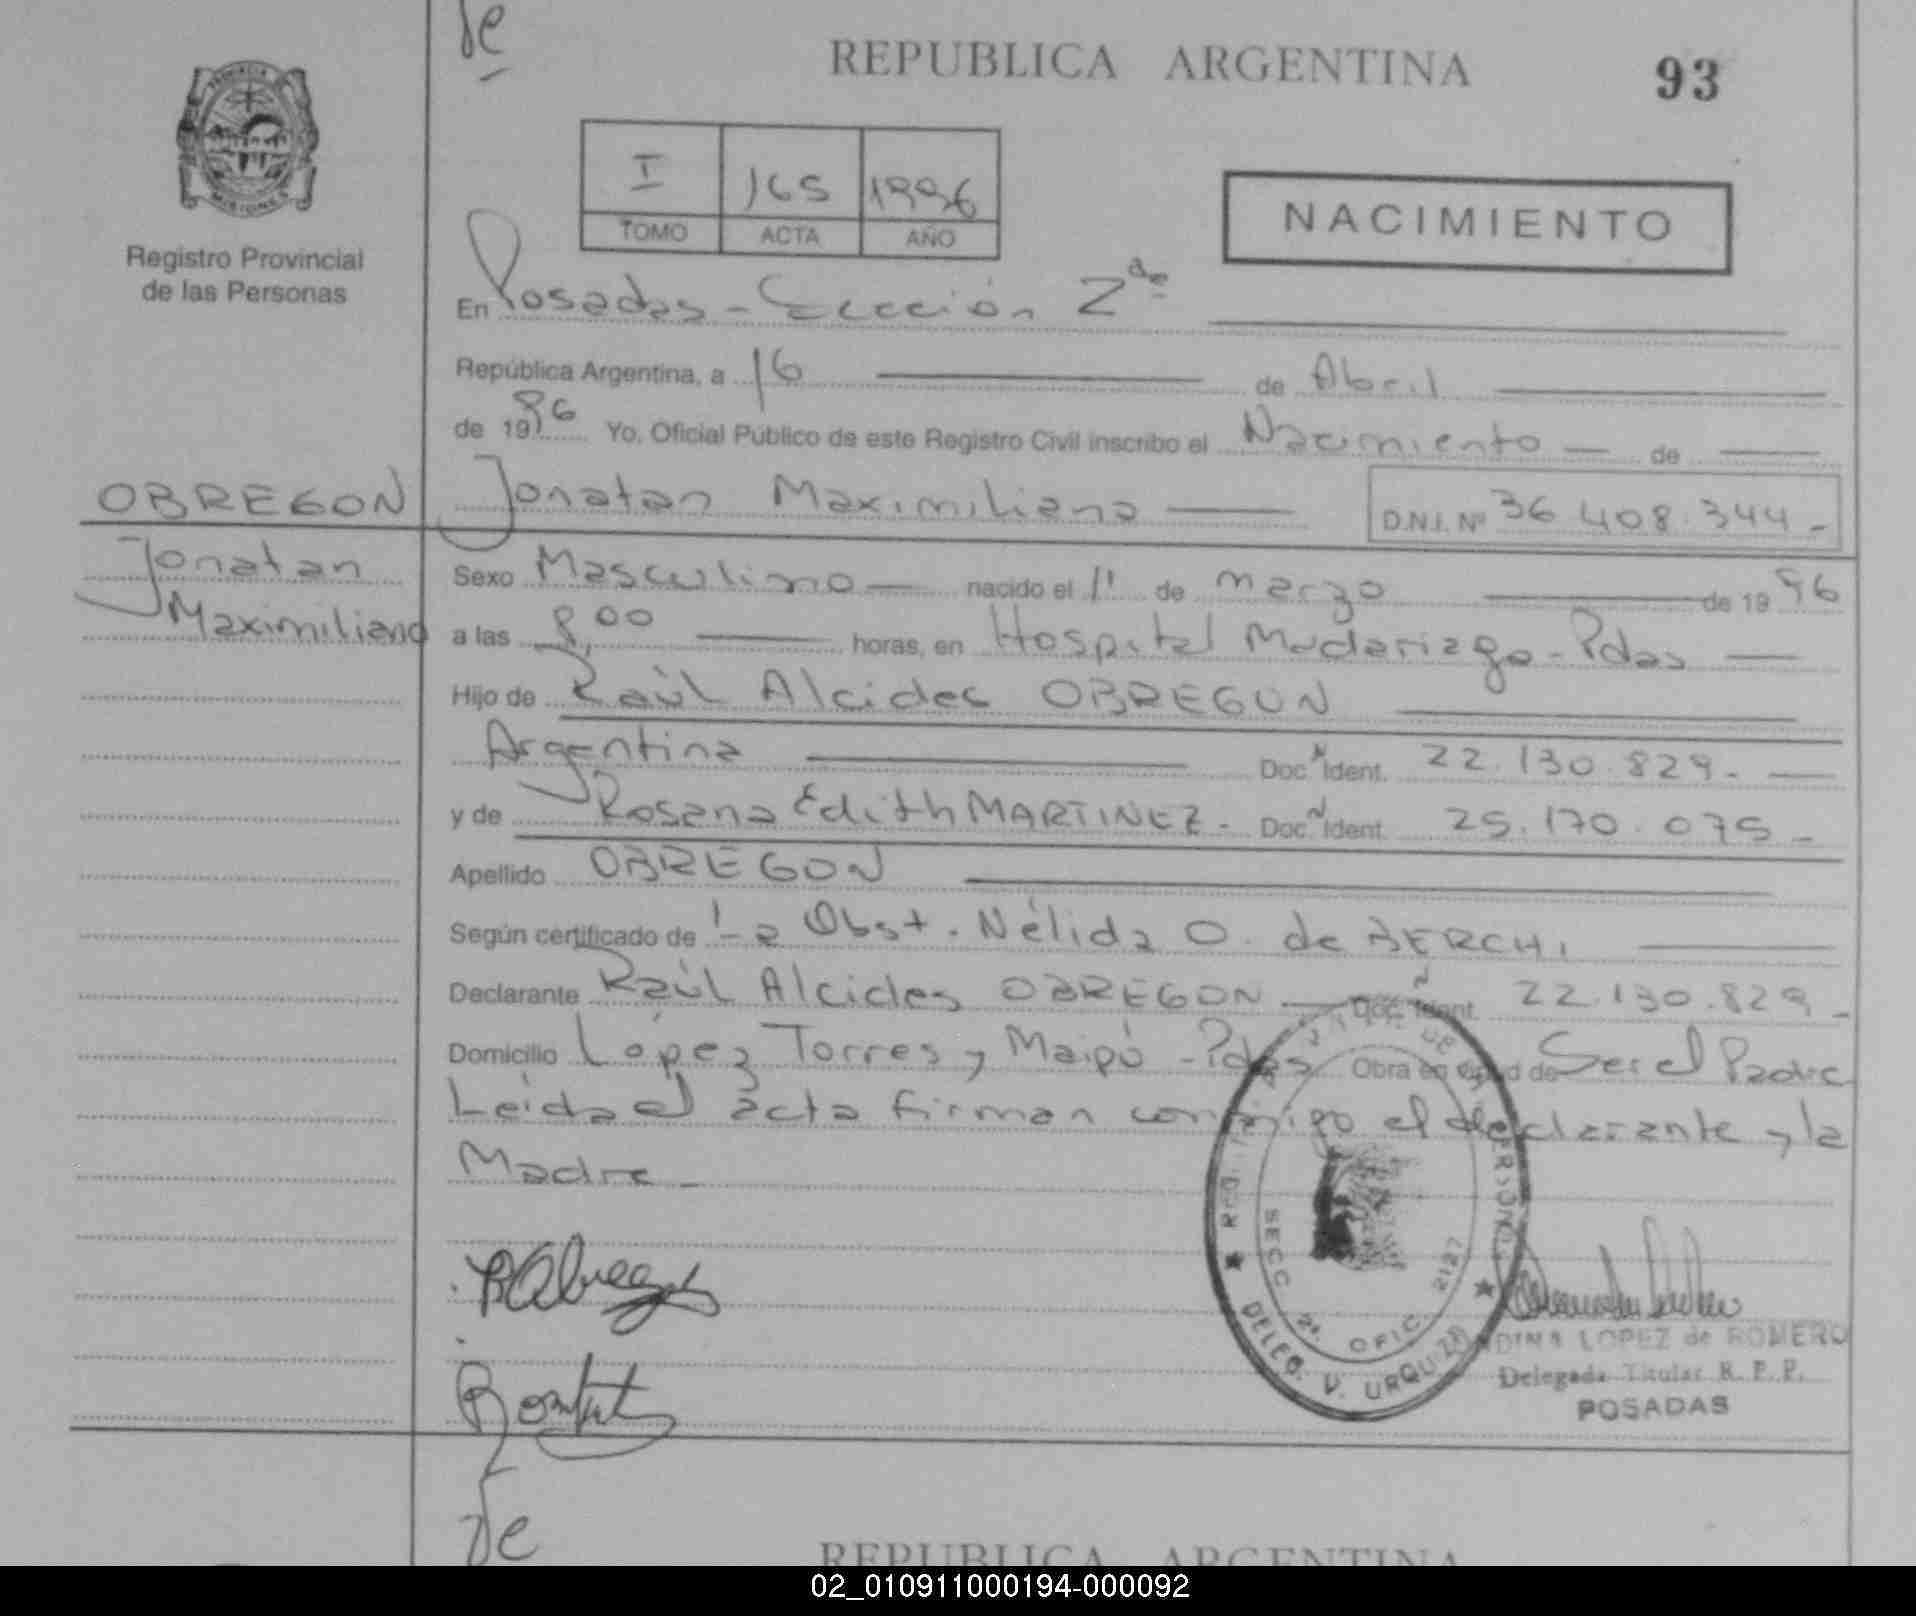 de
REPUBLICA ARGENTINA
93
PROVINCIA DE MISIONES
Registro Provincial
de las Personas
I 165 1996
TOMO ACTA AÑO
NACIMIENTO
En Posadas - Sección 2da
República Argentina, a 16 de Abril
de 1996 Yo, Oficial Público de este Registro Civil inscribo el Nacimiento de
OBREGON
Jonatan Maximiliano
D.N.I. Nº 36 408.344.-
Jonatan
Maximiliano
Sexo Masculino nacido el 1º de marzo de 1996
a las 8,00 horas, en Hospital Madariaga - Pdas
Hijo de Raúl Alcides OBREGON
Argentina Doc. Ident. 22.130.829.-
y de Rosana Edith MARTINEZ - Doc. Ident. 25.170.075 -
Apellido OBREGON
Según certificado de La Obst. Nélida O. de BERCHI
Declarante Raúl Alcides OBREGON Doc. Ident. 22.130.829 -
Domicilio López Torres y Maipú - Pdas Obra en virtud de Ser el Padre
Leida el acta firman conmigo el declarante y la
Madre -
R Obregon
SECC 2ª. OFIC. 2127
DELEG. V. URQUIZA
DINA LOPEZ de ROMERO
Delegada Titular R. P. P.
POSADAS
de
REPUBLICA ARGENTINA
02_010911000194-000092